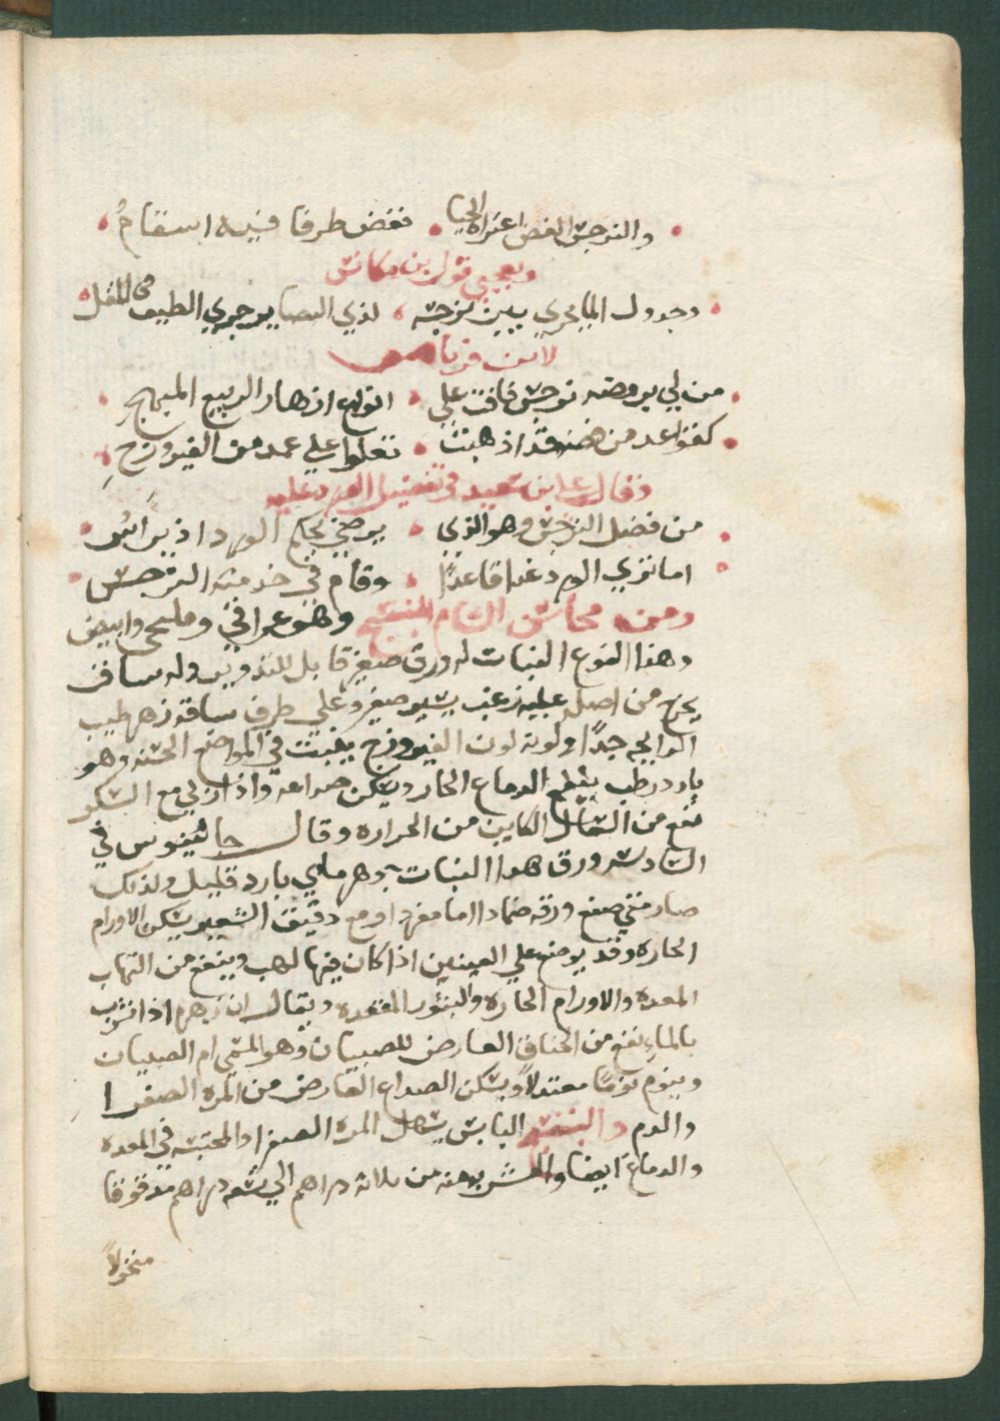 والنرجس الغض اعتراه الحيا • فغض طرفا فيه اسقام
ويعجبني قول بن مكانس
وجدول الما يجري بين نرجسه • لذي البصاير جري الطيف في المقل
لابن قرناص
من لي بروضه نرجس فاقت علي • انواع ازهار الربيع المبهج
كقواعد من فضه قد اذهبت • تعلوا علي عمد من الفيروزج
وقال علي بن سعيد في تفضيل الورد عليه
من فضل النرجس وهو الذي • يرضي بحكم الورد اذ يراس
اما تري الورد غدا قاعدا • وقام في خدمته النرجس
ومن محاسن الشام البنفسج وهو عراقي وملحي وابيض
وهذا النوع النبات له ورق صغير قابل للتدوير وله ساق
يخرج من اصله عليه زغب يسير صغير وعلي طرف ساقه زهر طيب
الرايحه جدًا ولونه لون الفيروزج ينبت في المواضع الخشنه وهو
بارد رطب ينفع الدماغ الحار ويسكن صداعه واذا ربي مع السكر
نفع من السعال الكاين من الحراره وقال جالينوس في
السادسه ورق هذا النبات جوهر ماي بارد قليل ولذلك
صار متي صنع ورقه ضمادا اما مفردا او مع دقيق الشعير يسكن الاورام
الحاره وقد يوضع علي العينين اذا كان فيها لهب وينفع من التهاب
المعده والاورام الحاره والبثور المقعده ويقال ان زهره اذا شرب
بالماء نفع من الخناق العارض للصبيان وهو المسمي ام الصبيان
وينوم نومًا معتدلاً ويسكن الصداع العارض من المره الصفرا
والدم والبنفسج اليابس يسهل المره الصفرا والمحتبسه في المعده
والدماغ ايضا والشربه منه من ثلاثة دراهم الي سبعه دراهم مدقوقا
منخولاً